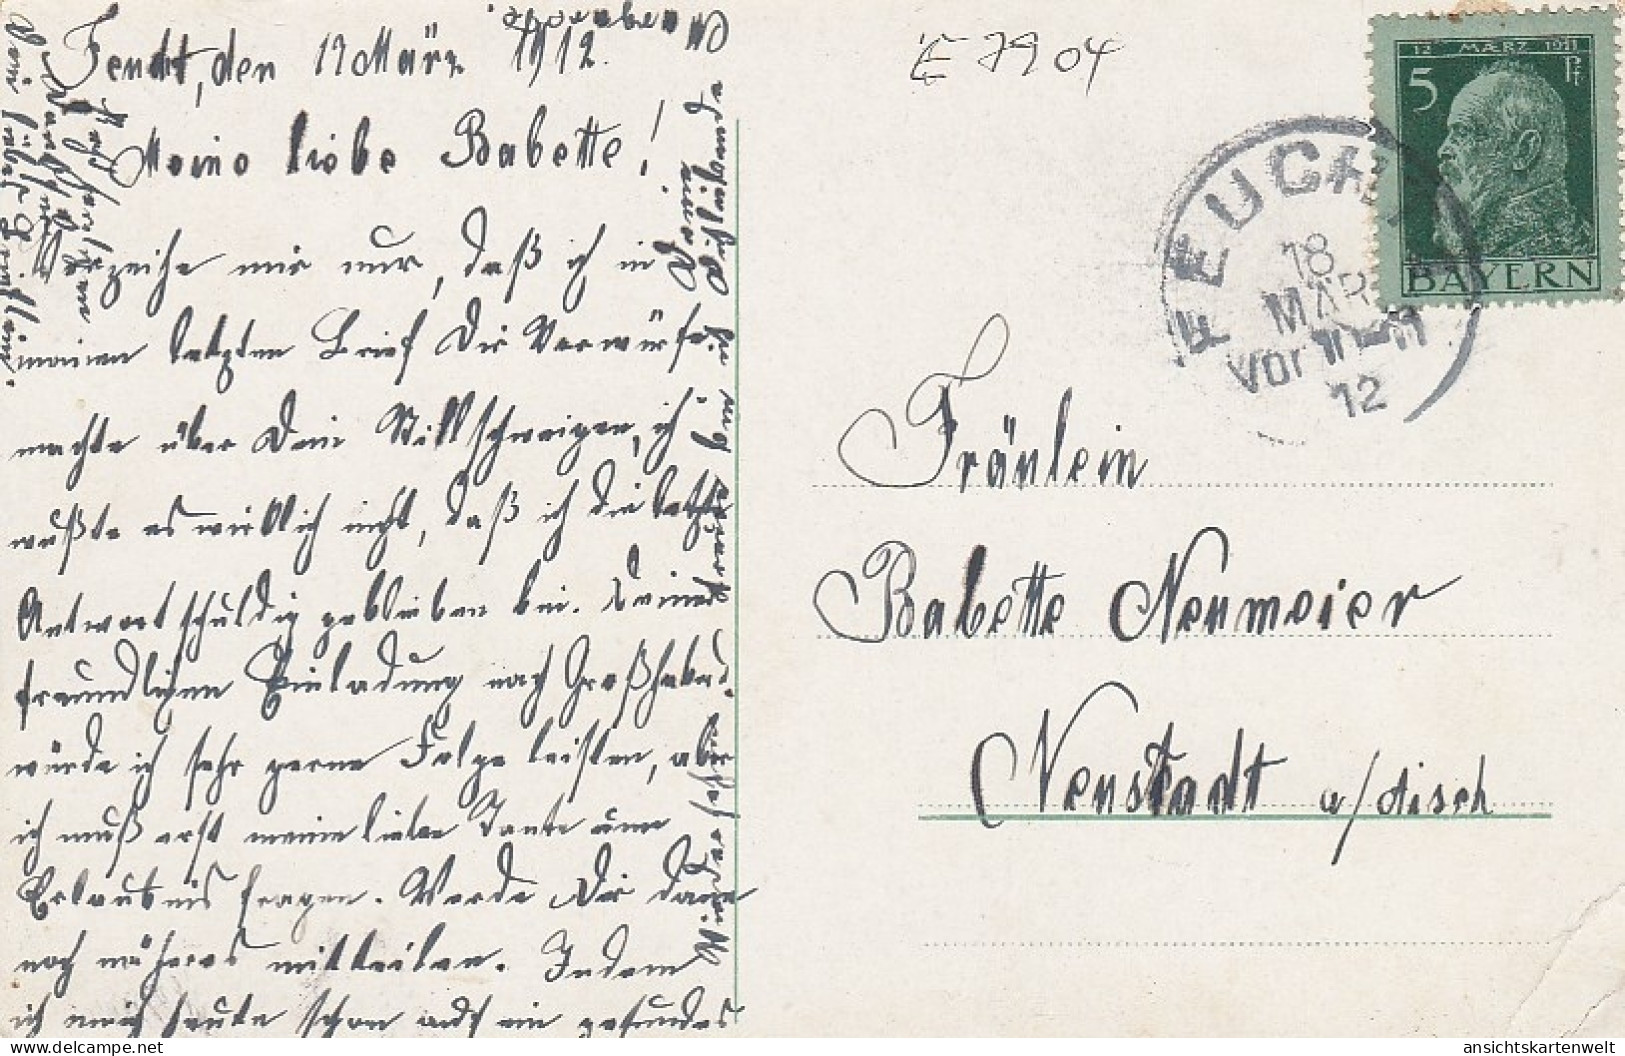 Feucht, den 17 März 1912.
Meine liebe Babette!
Verzeihe mir nur, daß ich in
meinen letzten Brief Dir Vorwürfe
machte über Dein Stillschweigen, ich
wußte es wirklich nicht, daß ich die letzte
Antwort schuldig geblieben bin. Deiner
freundlichen Einladung nach Großhabersd.
würde ich sehr gerne Folge leisten, aber
ich muß erst meine liebe Tante um
Erlaubnis fragen. Werde Dir dann
noch näheres mitteilen. Indem
ich mich heute schon auf ein gesundes
Wiedersehen
freue
Deine
E 7904
12 MÆRZ 1911
5 Pf
BAYERN
FEUCHT
18
MÄR
Vor 10-11
12
Fräulein
Babette Neumeier
Neustadt a/Aisch
ansichtskartenwelt